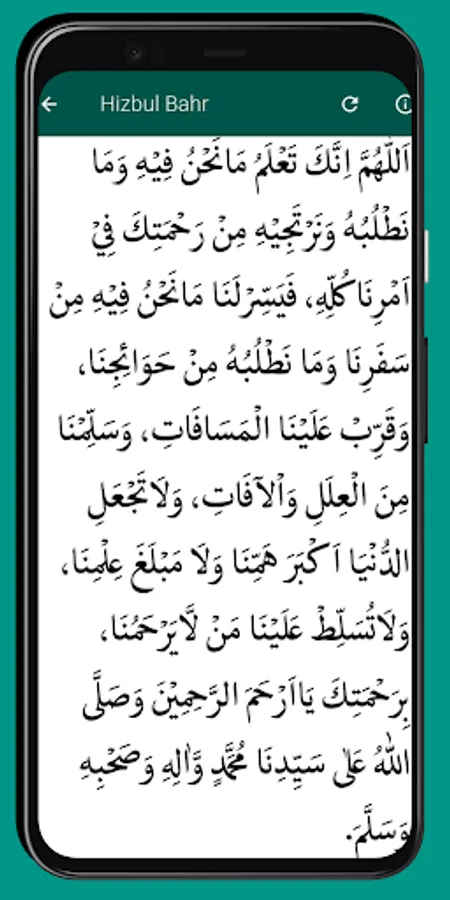 Hizbul Bahr
اَللّٰهُمَّ اِنَّكَ تَعْلَمُ مَانَحْنُ فِيْهِ وَمَا
نَطْلُبُهُ وَنَرْتَجِيْهِ مِنْ رَحْمَتِكَ فِيْ
اَمْرِنَاكُلِّهِ، فَيَسِّرْلَنَا مَانَحْنُ فِيْهِ مِنْ
سَفَرِنَا وَمَا نَطْلُبُهُ مِنْ حَوَائِجِنَا،
وَقَرِّبْ عَلَيْنَا الْمَسَافَاتِ، وَسَلِّمْنَا
مِنَ الْعِلَلِ وَاْلآفَاتِ، وَلَاتَجْعَلِ
الدُّنْيَا اَكْبَرَ هَمِّنَا وَلَا مَبْلَغَ عِلْمِنَا،
وَلَاتُسَلِّطْ عَلَيْنَا مَنْ لَّايَرْحَمُنَا،
بِرَحْمَتِكَ يَااَرْحَمَ الرَّحِمِيْنَ وَصَلَّى
اللّٰهُ عَلٰى سَيِّدِنَا مُحَمَّدٍ وَّاٰلِهِ وَصَحْبِهِ
وَسَلَّمَ.